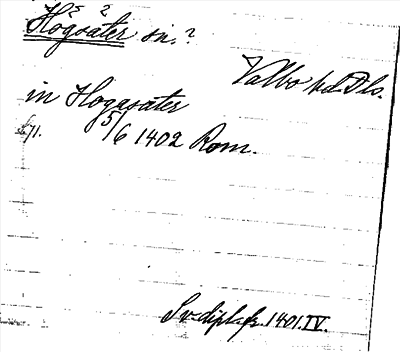 Högsäter sn.?
Valbo hd. Dls.
in Hogasater
5/6 1402 Rom.
Sv. dipl. fr. 1401. IV.